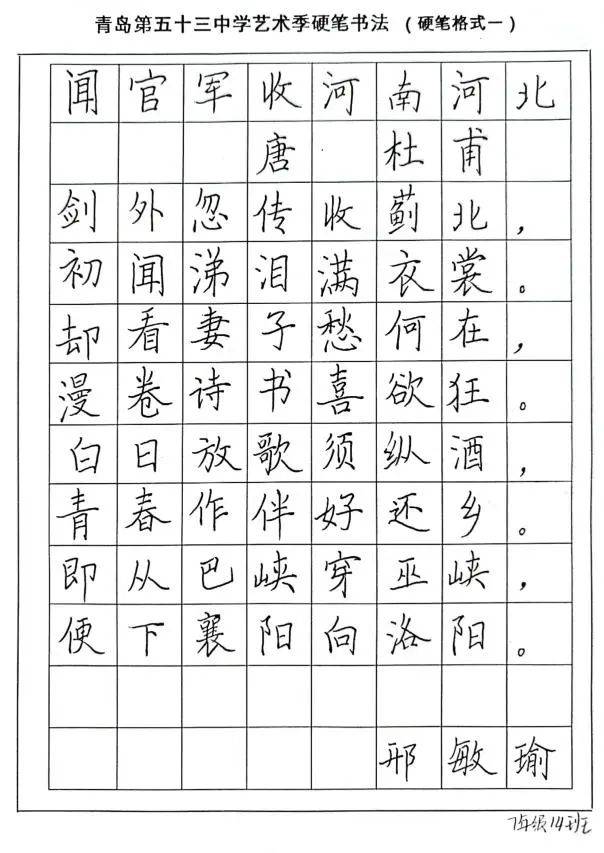 青岛第五十三中学艺术季硬笔书法 （硬笔格式一）
闻官军收河南河北
唐 杜甫
剑外忽传收蓟北，
初闻涕泪满衣裳。
却看妻子愁何在，
漫卷诗书喜欲狂。
白日放歌须纵酒，
青春作伴好还乡。
即从巴峡穿巫峡，
便下襄阳向洛阳。
邢敏瑜
7年级14班